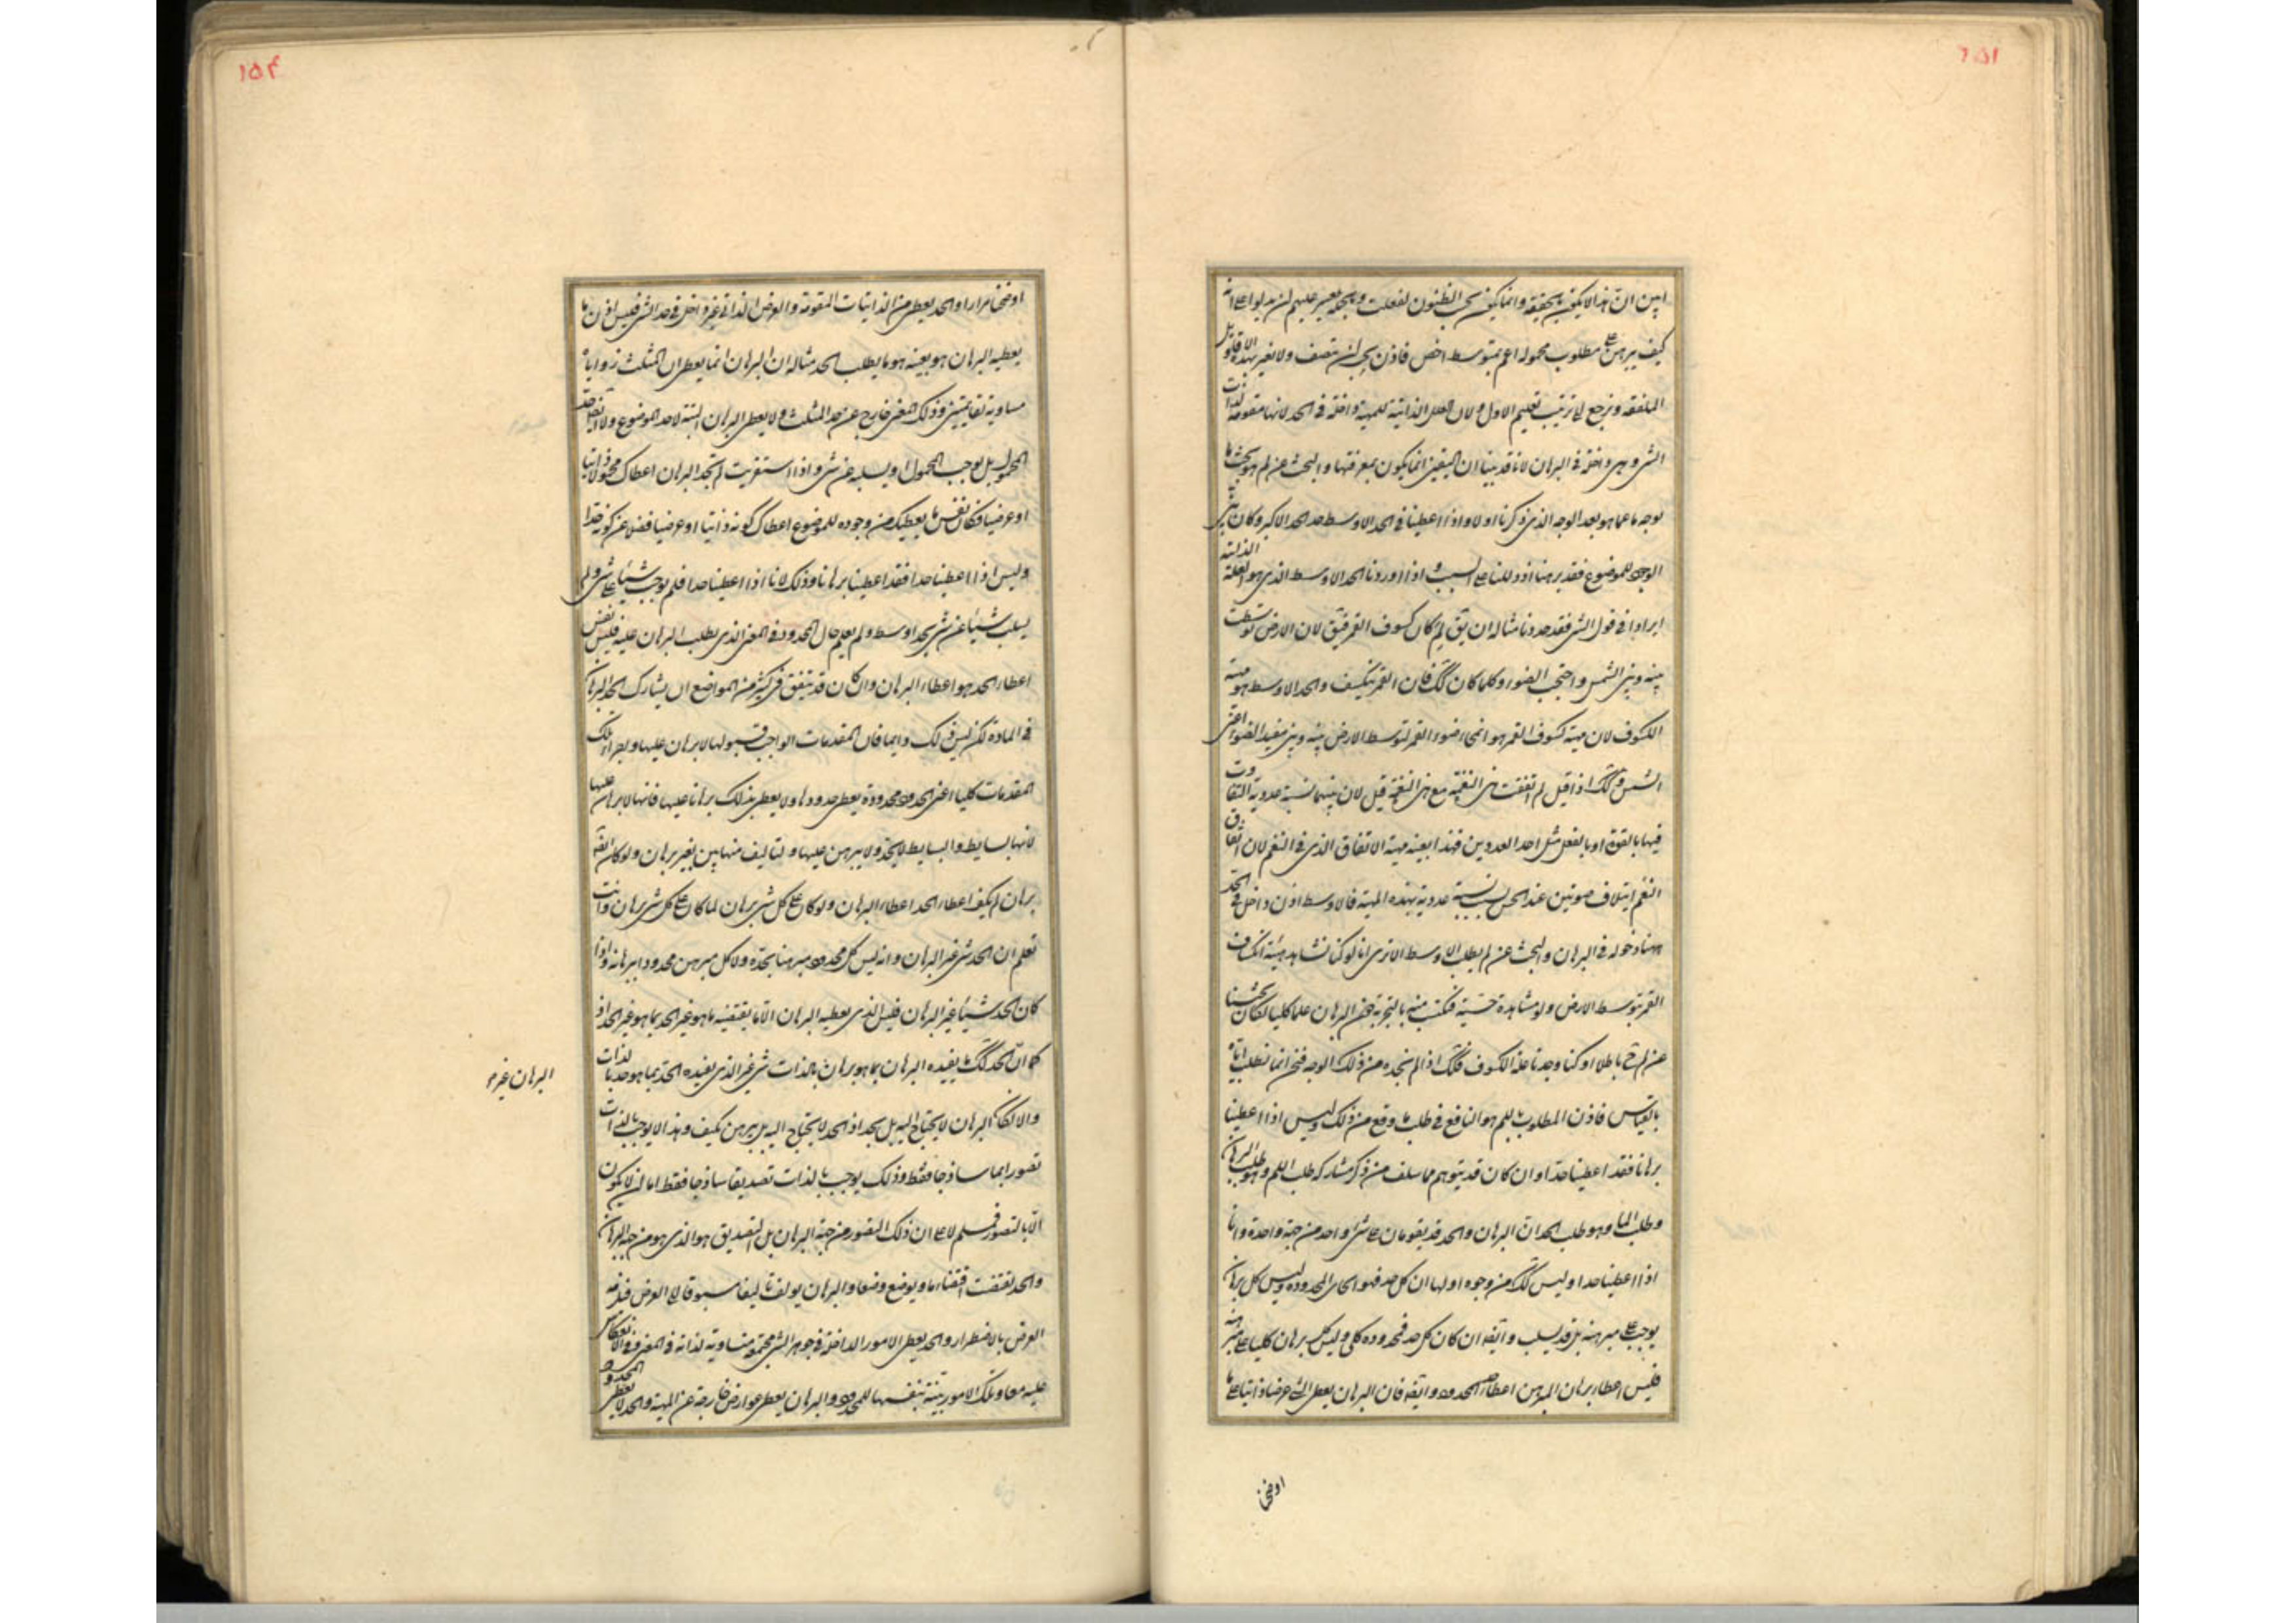 ١٥١
ابين ان هذا لا يكون بحقيقة وانما يكون بحسب الظنون لفعلت وبحجة يعسر عليهم ان يدلوا على انه
كيف يبرهن على مطلوب محموله اعم بمتوسط اخص فاذن يجب ان ننصف ولا نغير بهذه الاقاويل
الملفقة ونرجع الى ترتيب تعليم الاول ولان العلل الذاتية للمهية داخلة فى الحد لانها مقومة لذات
الشى وهى داخلة فى البرهان لانا قد بينا ان اليقين انما يكون بمعرفتها والبحث عن لم هو بحث ما
بوجه ما عما هو بعد الوجه الذى ذكرنا اولا واذا اعطينا فى الحد الاوسط حد الحد الاكبر وكان بين
الوجود للموضوع فقد برهنا اذ دللنا على السبب و اذا اوردنا الحد الاوسط الذى هو العلة الذاتية
ايرادا فى قول الشى فقد حددنا مثاله ان يق لم كان كسوف القمر فيق لان الارض توسطت
بينه وبين الشمس واحتجب الضوء وكلما كان كك فان القمر ينكسف والحد الاوسط هو مهية
الكسوف لان مهية كسوف القمر هو انمحاء ضوء القمر لتوسط الارض بينه وبين مفيد الضوء اعنى
الشمس وكك اذا قيل لم اتفقت هذه النغمة مع هذه النغمة قيل لان بينهما نسبة عددية التفاوت
فيها بالقوة او بالفعل مثل احد العددين فهذا بعينه مهية الاتفاق الذى فى النغم لان اتفاق
النغم ايتلاف صوتين عند الحس بسبب نسبة عددية بهذه المهية فالاوسط اذن داخل فى الحد
ههنا دخوله فى البرهان والبحث عن لم يطلب الاوسط الا ترى انا لو كنا نشاهد هيئة انكساف
القمر بتوسط الارض ولو مشاهدة حسية فنكتسب منه بالتجربة نحن البرهان علما كليا لكان بحثنا
عن لم ح باطلا او كنا وجدنا علة الكسوف فكك اذا لم نجده من ذلك الوجه فنحن انما نطلب اياه
بالقياس فاذن المطلوب باللم هو النافع فى طلب ما وقع من ذلك وليس اذا اعطينا
برهانا فقد اعطينا حدا وان كان قد يتوهم مما سلف من ذكر مشاركة طلب اللم وهو طلب البرهان
وطلب الما وهو طلب الحد ان البرهان والحد قد يقومان على شى واحد من جهة واحدة وانا
اذا اعطينا حدا وليس كك من وجوه اولها ان كل حد فهو الحاس للمحدود وليس كل برهان
يوجب على مبرهنه بل قد يسلب وايضا ان كان كل حد فمحدوده كلى وليس كل برهان كليا على مبرهنه
فليس اعطاء برهان المبرهن اعطاء حد المحدود وايضا فان البرهان يعطى الشى عرضا ذاتيا على ما
اوضحنا
١٥٤
اوضحنا مرارا والحد يعطى من الذاتيات المقومة والعرض الذاتى غير داخل فى حد الشى فليس اذن ما
يعطيه البرهان هو بعينه هو ما يطلب الحد مثاله ان البرهان انما يعطى ان المثلث زواياه
مساوية لقايمتين وذلك المعنى خارج عن حد المثلث ولا يعطى البرهان البتة لا حد الموضوع ولا ايضا حد
المحمول بل يوجب المحمول او يسلبه عن شى واذا استقريت لم تجد البرهان اعطاك محمولا ذاتيا
او عرضيا فكان نفس ما يعطيك من وجوده للموضوع اعطاك كونه ذاتيا او عرضيا فضلا عن كونه حدا
وليس اذا اعطينا حدا فقد اعطينا برهانا وذلك لانا اذا اعطينا حدا فلم نوجب شيئا على شى ولم
نسلب شيئا عن شى بحد اوسط ولم يعلم حال المحدود فى المعنى الذى يطلب البرهان عليه فليس نفس
اعطاء الحد هو اعطاء البرهان وان كان قد يتفق فى كثير من المواضع ان يشارك الحد البرهان
فى المادة لكن ليس ذلك دايما فان المقدمات الواجب قبولها لا برهان عليها وبعض اجزاء تلك
المقدمات كليا اعنى الحدود محدودة يعطى حدودها ولا يعطى بذلك برهانا عليها فانها لا برهان عليها
لانها بسايط والبسايط لا يحد ولا يبرهن عليها والتاليف منها بين بغير برهان ولو كان ايضا
برهان لم يكف اعطاء الحد اعطاء البرهان ولو كان على كل شى برهان لما كان على كل شى برهان وانت
تعلم ان الحد شى غير البرهان وانه ليس كل محدود مبرهنا بحده ولا كل مبرهن محدودا ببرهانه واذا
كان الحد شيئا غير البرهان فليس الذى يعطيه البرهان الا ما يقتضيه ما هو غير الحد بما هو غير الحد اذ
كما ان الحد كك ما يفيده البرهان بما هو برهان بالذات شى غير الذى يفيده الحد بما هو حد بالذات
والا لكان البرهان لا يحتاج اليه بل بحد اذ الحد لا يحتاج اليه بل يبرهن كيف وهذا لا يوجب بالذات
تصورا بما ساذجا فقط وذلك يوجب بالذات تصديقا ساذجا فقط اما ان لا يكون
الا بالتصور فمسلم لا على ان ذلك التصور من جهة البرهان بل التصديق هو الذى هو من جهة البرهان
والحد يقتضب اقتضابا ويوضع وضعا والبرهان يولف تاليفا مسبوقا الى الغرض فيلزمه
الغرض بالاضطرار والحد يعطى الامور الداخلة فى جوهر الشى مجتمعة متساوية لذاته فى المعنى وفى الانعكاس
عليه معا وتلك الامور بينة بنفسها للمحدود والبرهان يعطى عوارض خارجة عن المهية والحد لا يعطى المحدود
البرهان غير